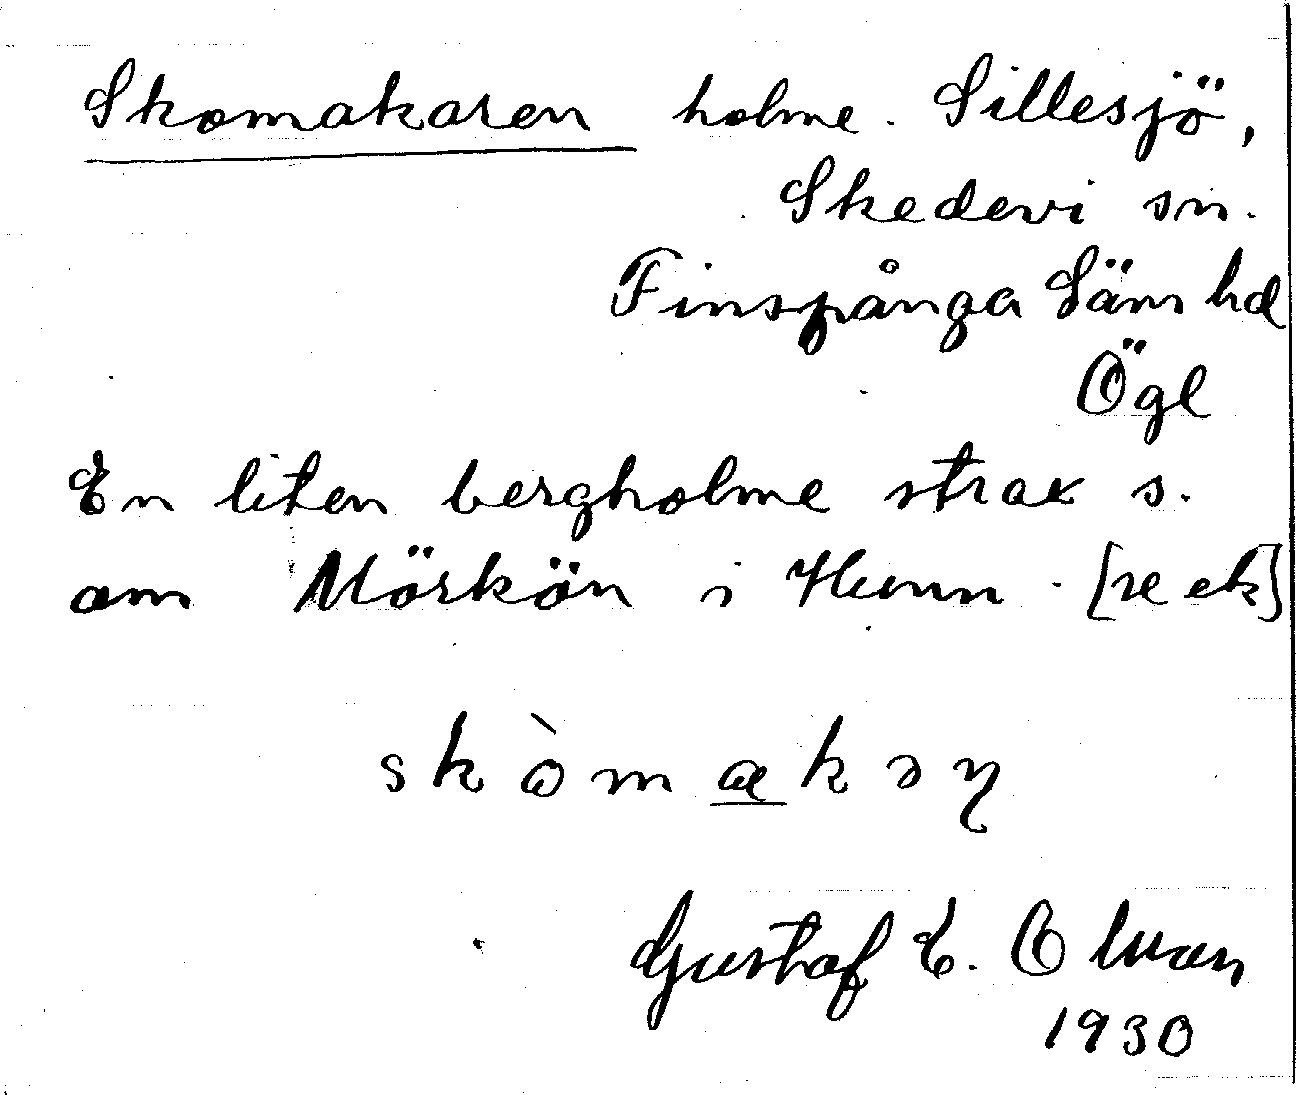 Skomakaren holme. Sillesjö,
Skedevi sn.
Finspånga Läns hd
Ögl
En liten bergholme strax s.
om Mörkön i Hunn. [se ek]
skòmakəɳ
Gustaf E. Olman
1930